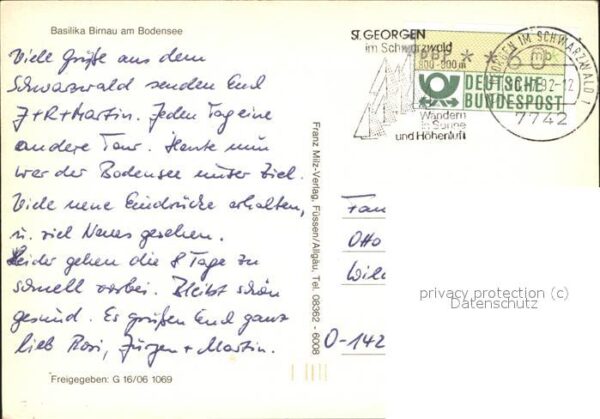 Basilika Birnau am Bodensee
Viele Grüße aus dem
Schwarzwald senden Euch
J+R+Martin. Jeden Tag eine
andere Tour. Heute nun
war der Bodensee unser Ziel.
Viele neue Eindrücke erhalten,
u. viel Neues gesehen.
Leider gehen die 8 Tage zu
schnell vorbei. Bleibt schön
gesund. Es grüßen Euch ganz
lieb Rosi, Jürgen + Martin.
Freigegeben: G 16/06 1069
Franz Milz-Verlag, Füssen/Allgäu, Tel. 08362 - 6008
ST. GEORGEN
im Schwarzwald
800-900 m
Wandern
in Sonne
und Höhenluft
DBP
60
DEUTSCHE
BUNDESPOST
ORGEN IM SCHWARZWALD 1
92-12
7742
Fam
Otto
O-142
privacy protection (c)
Datenschutz